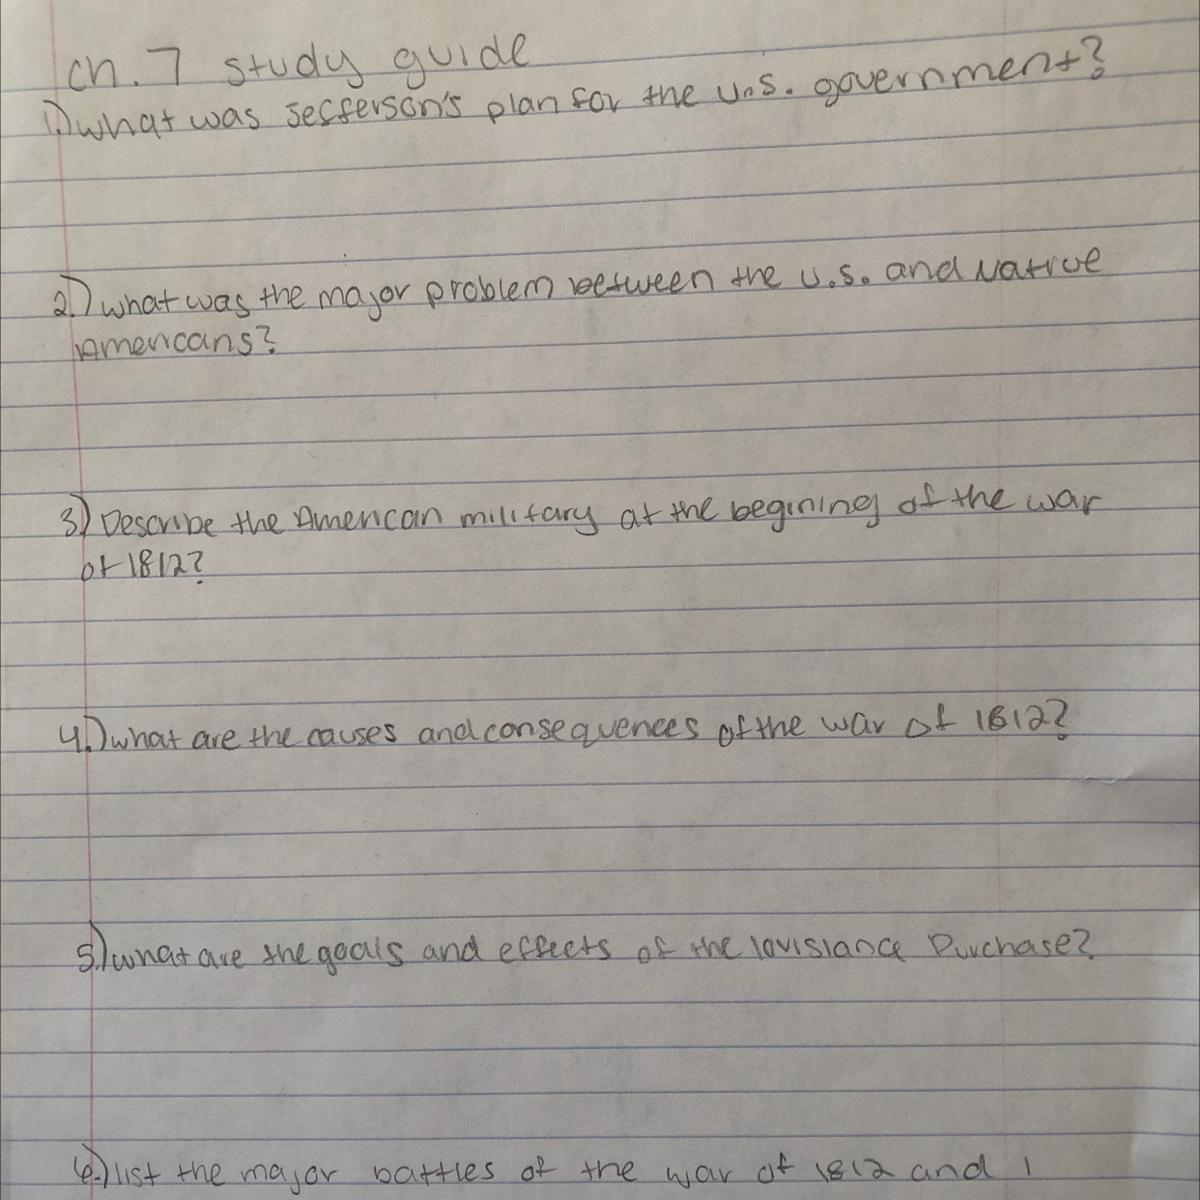 ch. 7 study guide
1.) what was Jefferson's plan for the U.S. government?
2.) what was the major problem between the U.S. and Native
Americans?
3.) Describe the American military at the begining of the war
of 1812?
4.) what are the causes and consequences of the war of 1812?
5.) what are the goals and effects of the lovisiance Purchase?
6.) list the major battles of the war of 1812 and